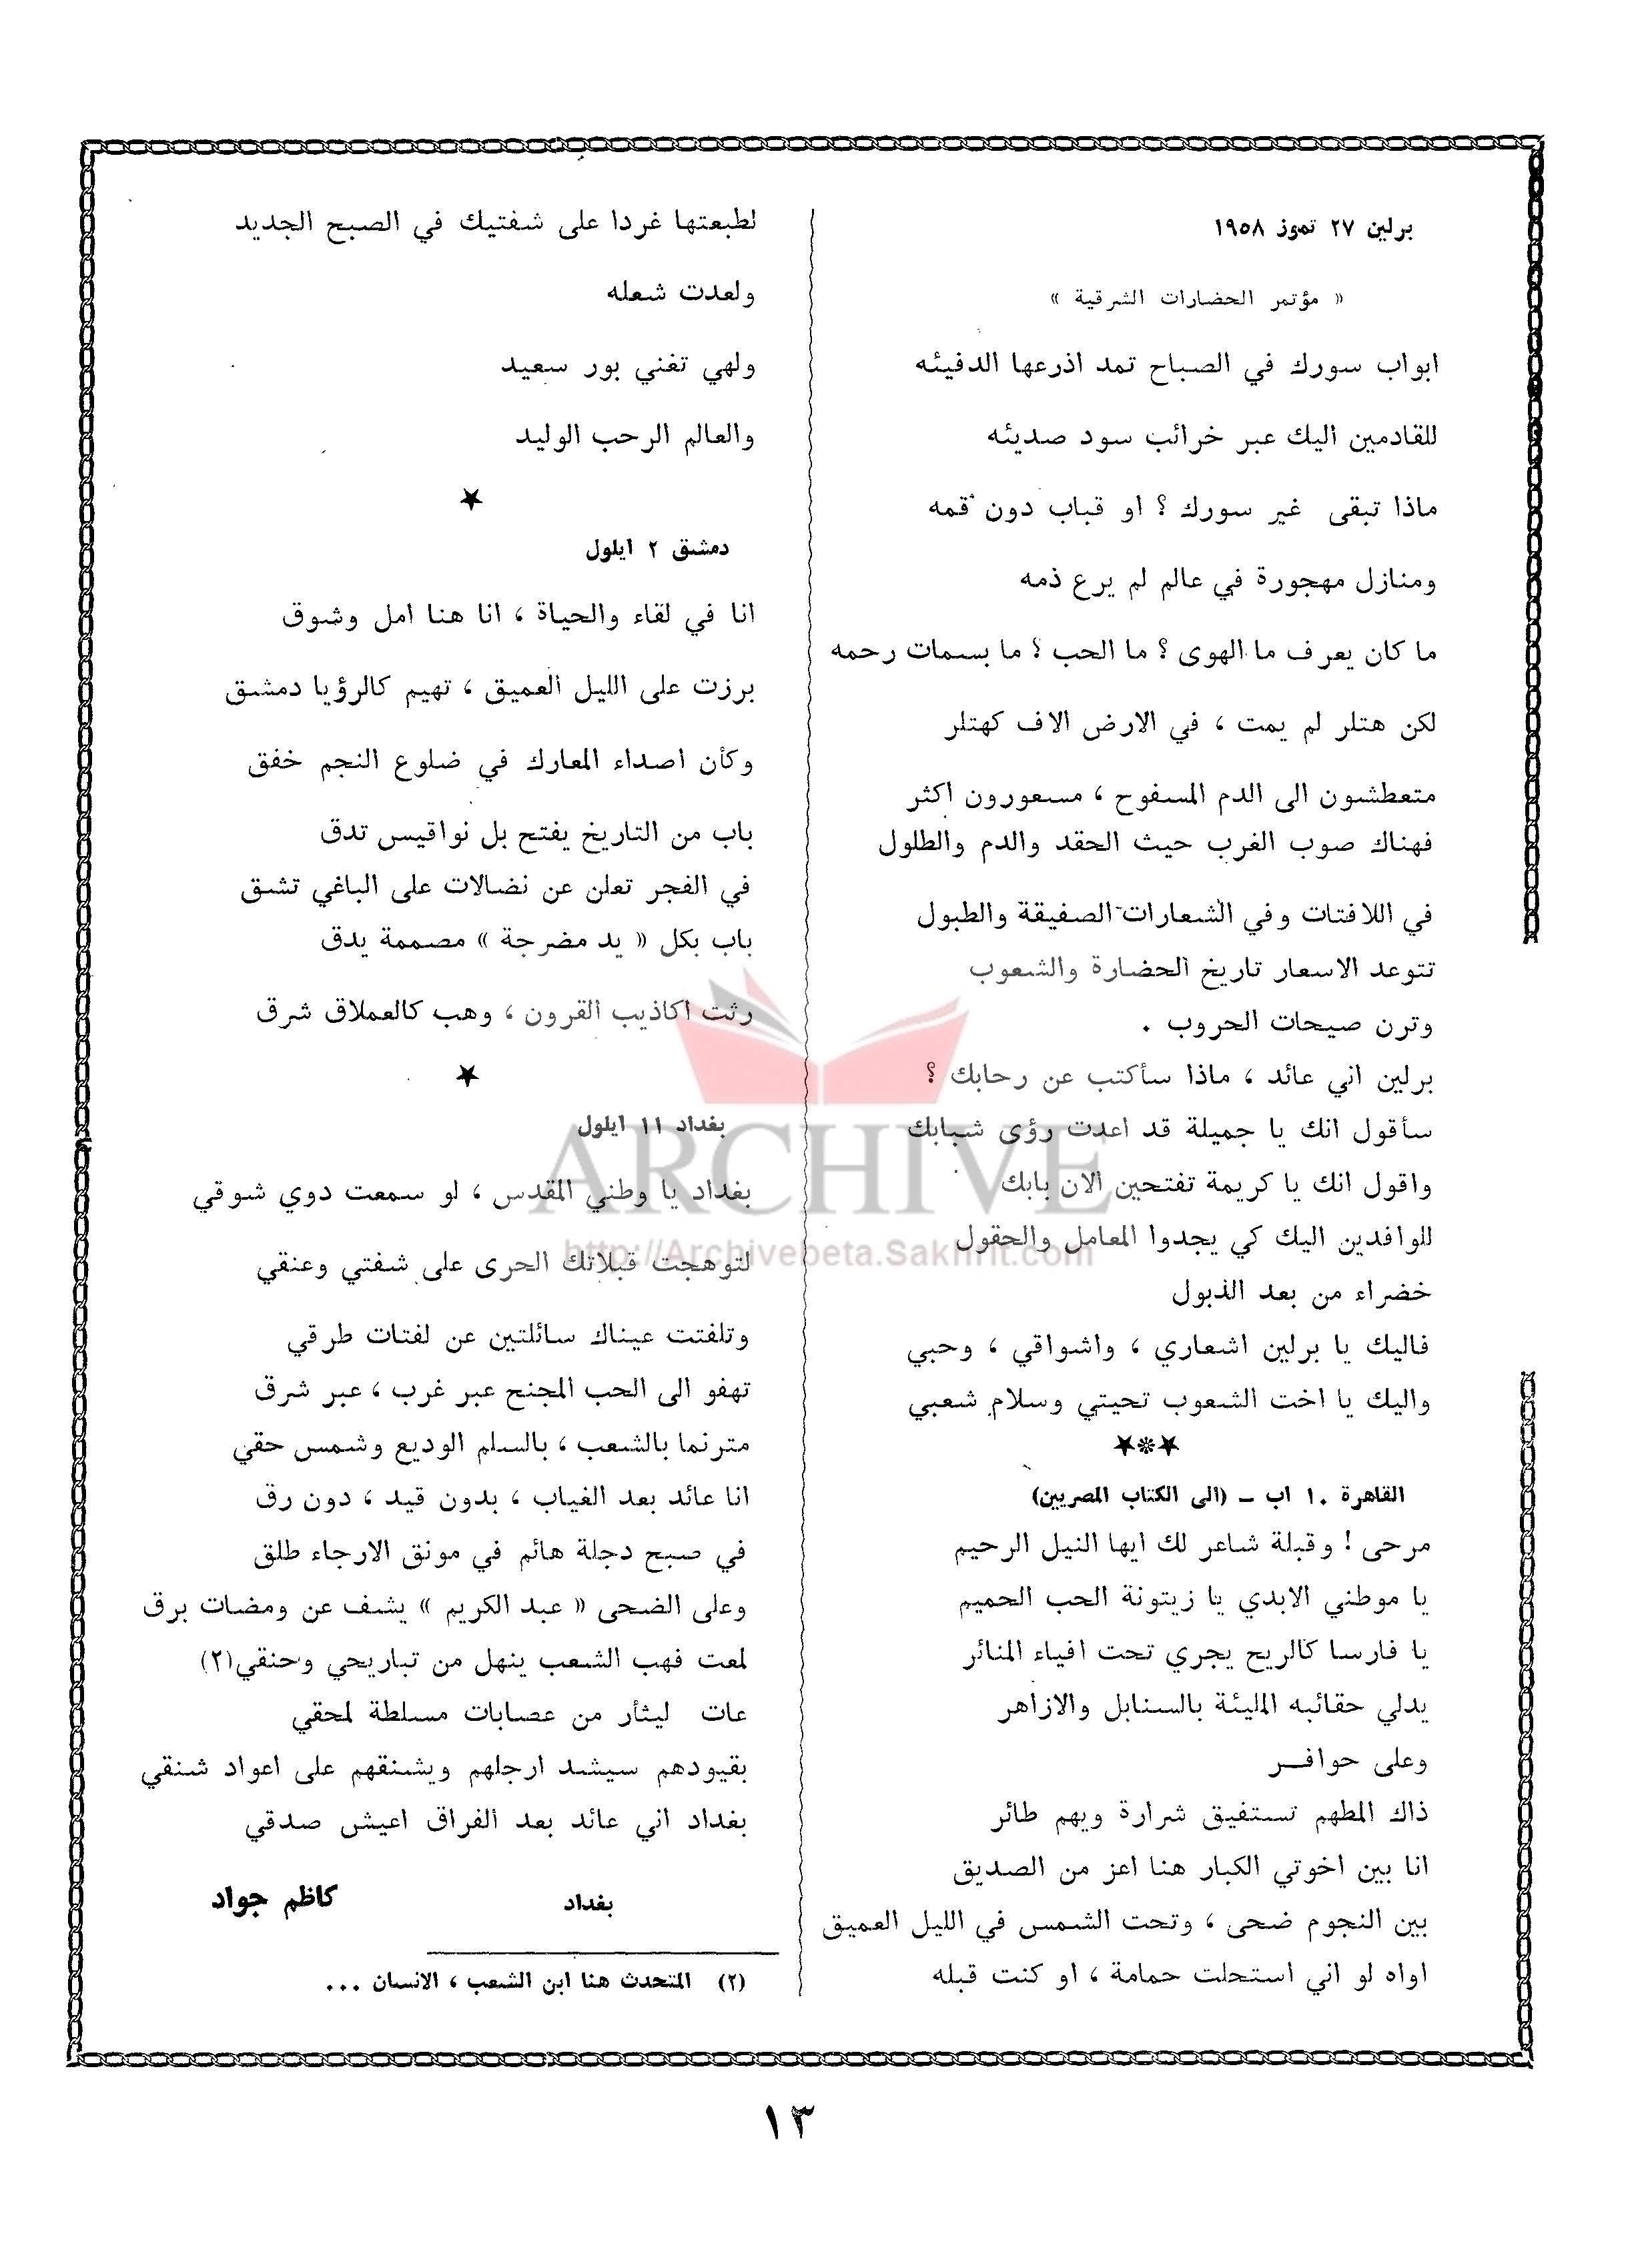 برلين ٢٧ تموز ١٩٥٨
« مؤتمر الحضارات الشرقية »
ابواب سورك في الصباح تمد اذرعها الدفيئه
للقادمين اليك عبر خرائب سود صديئه
ماذا تبقى غير سورك ؟ او قباب دون قمه
ومنازل مهجورة في عالم لم يرع ذمه
ما كان يعرف ما الهوى ؟ ما الحب ؟ ما بسمات رحمه
لكن هتلر لم يمت ، في الارض الاف كهتلر
متعطشون الى الدم المسفوح ، مسعورون اكثر
فهناك صوب الغرب حيث الحقد والدم والطلول
في اللافتات وفي الشعارات الصفيقة والطبول
تتوعد الاسعار تاريخ الحضارة والشعوب
وترن صيحات الحروب .
برلين اني عائد ، ماذا سأكتب عن رحابك ؟
سأقول انك يا جميلة قد اعدت رؤى شبابك
واقول انك يا كريمة تفتحين الان بابك
للوافدين اليك كي يجدوا المعامل والحقول
خضراء من بعد الذبول
فاليك يا برلين اشعاري ، واشواقي ، وحبي
واليك يا اخت الشعوب تحيتي وسلام شعبي
★❊★
القاهرة ١٠ اب – (الى الكتاب المصريين)
مرحى ! وقبلة شاعر لك ايها النيل الرحيم
يا موطني الابدي يا زيتونة الحب الحميم
يا فارسا كالريح يجري تحت افياء المنائر
يدلي حقائبه المليئة بالسنابل والازاهر
وعلى حوافـــر
ذاك المطهم تستفيق شرارة ويهم طائر
انا بين اخوتي الكبار هنا اعز من الصديق
بين النجوم ضحى ، وتحت الشمس في الليل العميق
اواه لو اني استحلت حمامة ، او كنت قبله
لطبعتها غردا على شفتيك في الصبح الجديد
ولعدت شعله
ولهي تغني بور سعيد
والعالم الرحب الوليد
★
دمشق ٢ ايلول
انا في لقاء والحياة ، انا هنا امل وشوق
برزت على الليل العميق ، تهيم كالرؤيا دمشق
وكأن اصداء المعارك في ضلوع النجم خفق
باب من التاريخ يفتح بل نواقيس تدق
في الفجر تعلن عن نضالات على الباغي تشق
باب بكل « يد مضرجة » مصممة يدق
رثت اكاذيب القرون ، وهب كالعملاق شرق
★
بغداد ١١ ايلول
بغداد يا وطني المقدس ، لو سمعت دوي شوقي
لتوهجت قبلاتك الحرى على شفتي وعنقي
وتلفتت عيناك سائلتين عن لفتات طرقي
تهفو الى الحب المجنح عبر غرب ، عبر شرق
مترنما بالشعب ، بالسلم الوديع وشمس حقي
انا عائد بعد الغياب ، بدون قيد ، دون رق
في صبح دجلة هائم في مونق الارجاء طلق
وعلى الضحى « عبد الكريم » يشف عن ومضات برق
لمعت فهب الشعب ينهل من تباريحي وحنقي(٢)
عات ليثأر من عصابات مسلطة لمحقي
بقيودهم سيشد ارجلهم ويشنقهم على اعواد شنقي
بغداد اني عائد بعد الفراق اعيش صدقي
بغداد كاظم جواد
(٢) المتحدث هنا ابن الشعب ، الانسان ...
ARCHIVE
http://Archivebeta.Sakhrit.com
١٣